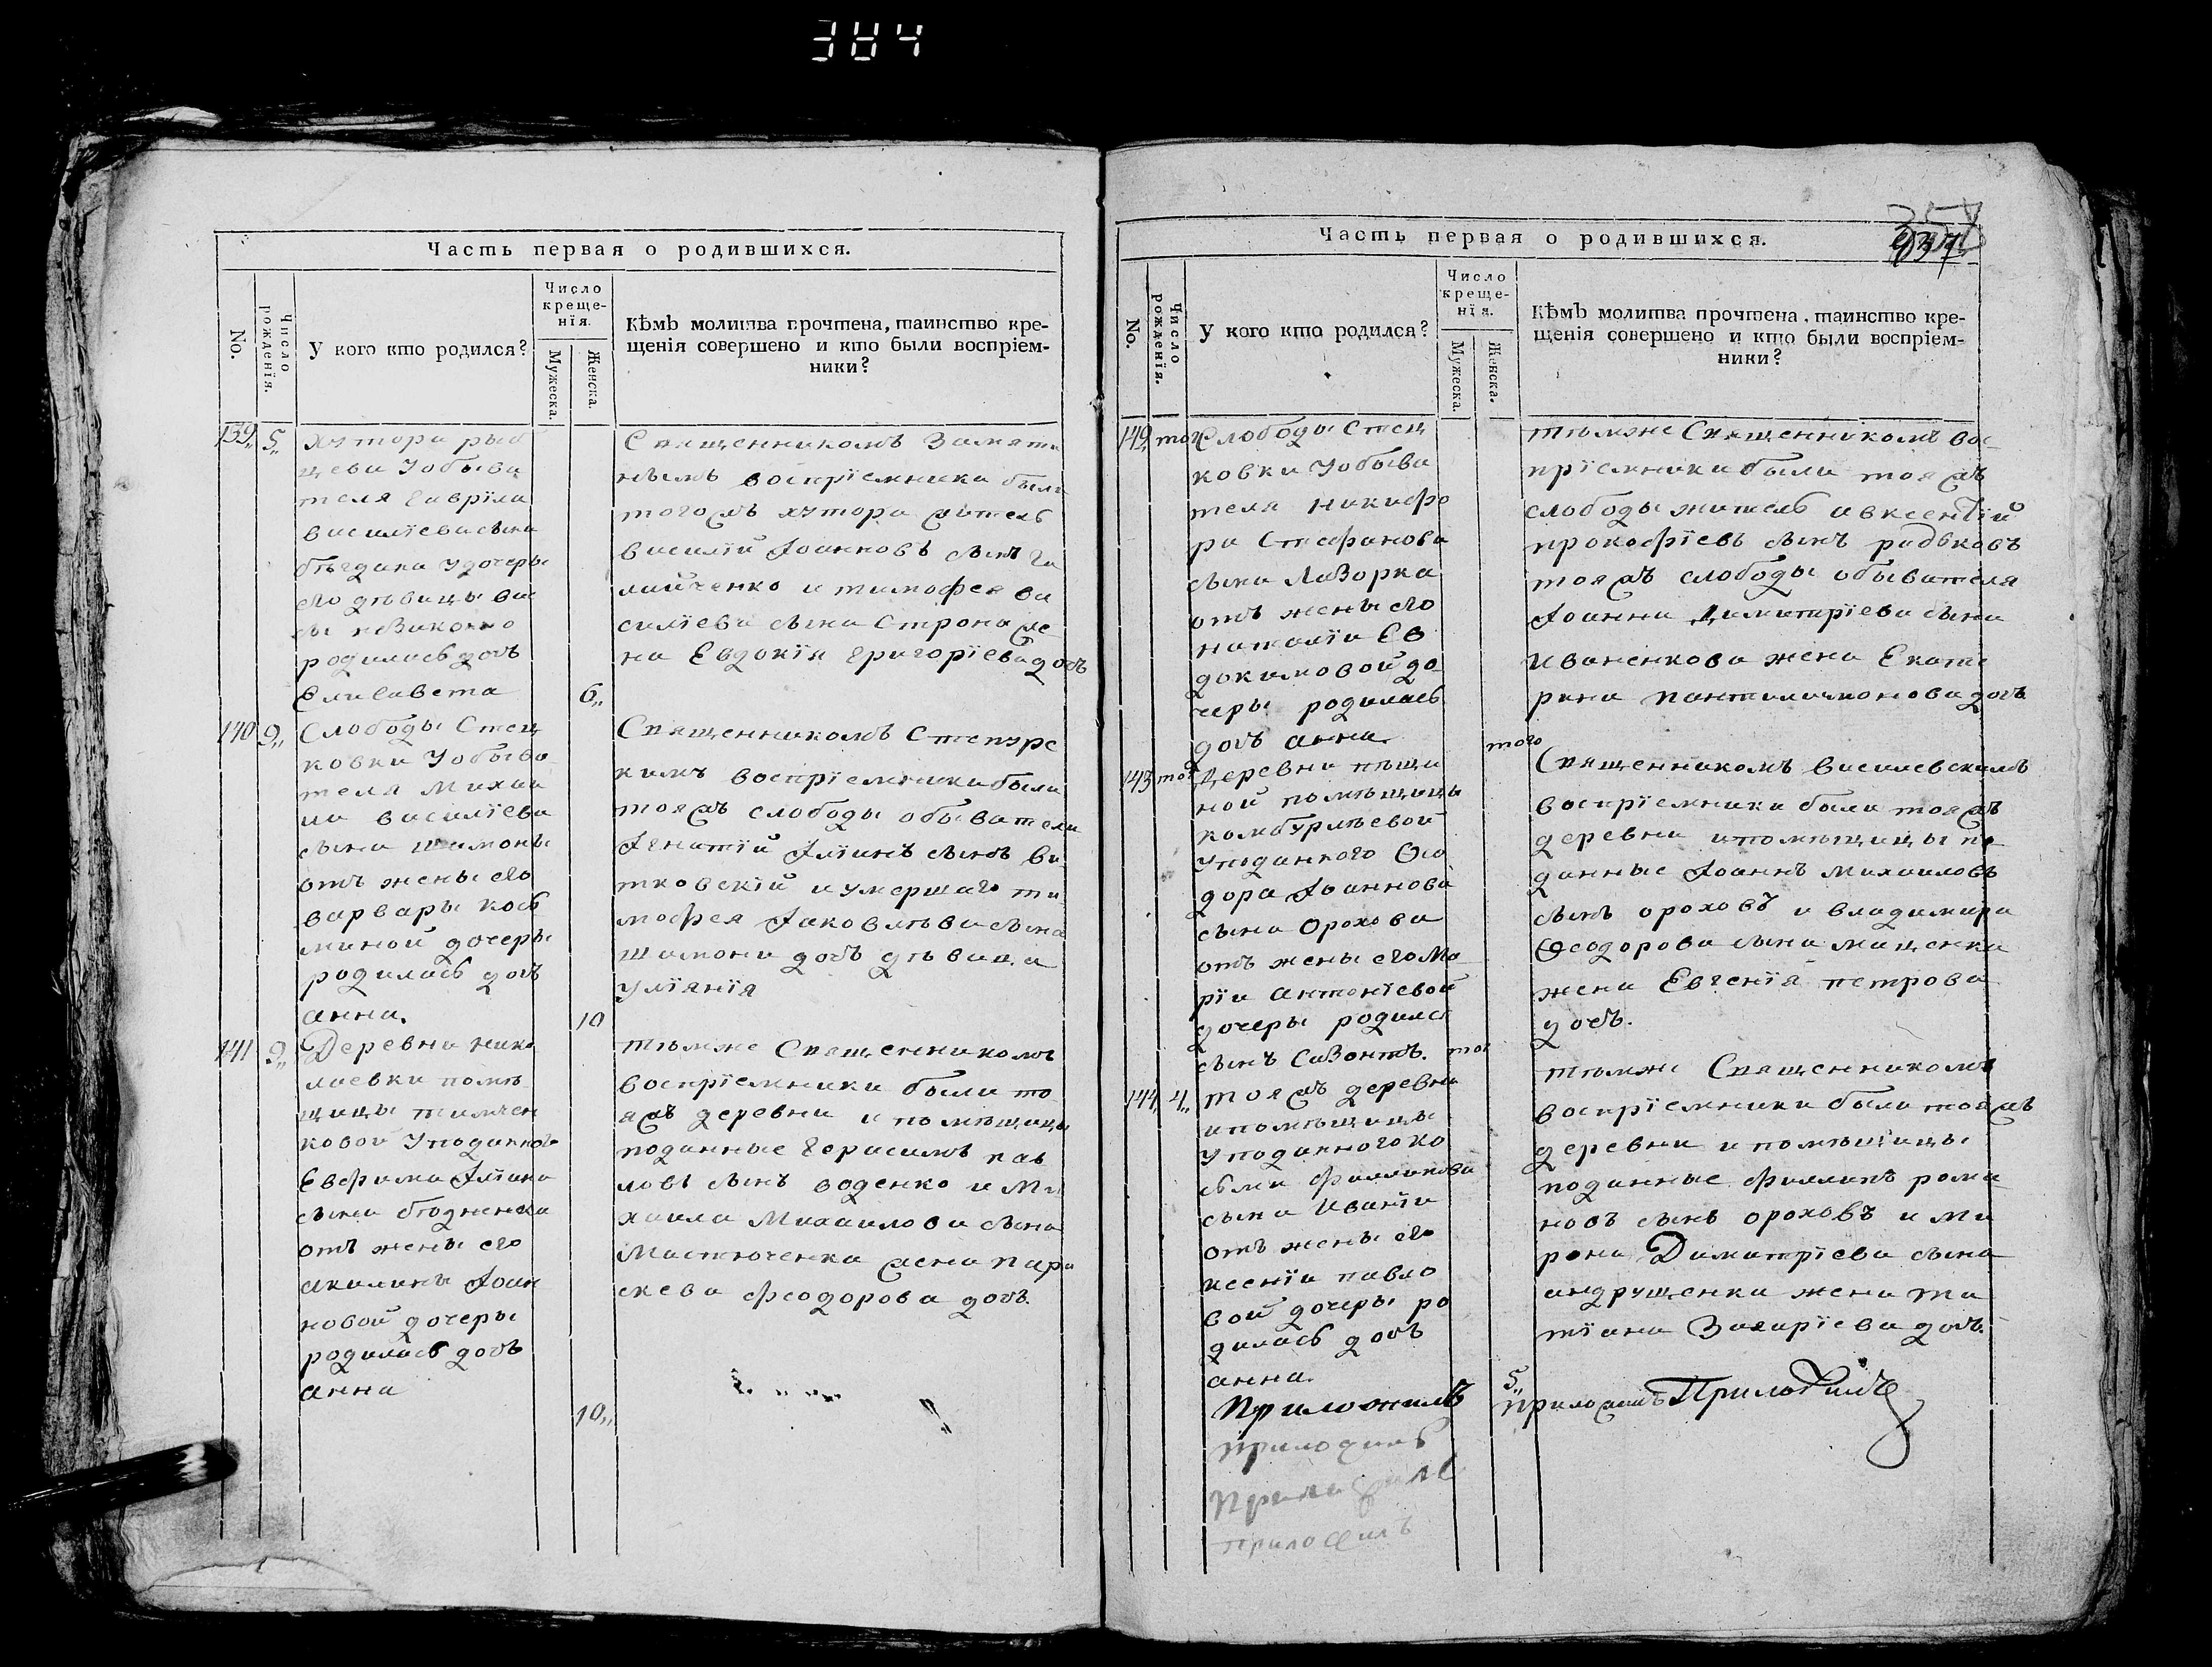 384
Часть первая о родившихся.
No.
Число рожденія.
У кого кто родился?
Число
креще-
нія.
Мужеска.
Женска.
Кѣмъ молитва прочтена, таинство кре-
щенія совершено и кто были воспріем-
ники?
139,, 5,,
хутора рыб
цева Уобыва
теля Гавріила
василіева сына
его дѣвицы
родилась дочь
Елисавета
6,,
Священникомъ
воспріемники были
тогожъ хутора житель
василій Іоанновъ сынъ га
лайченко и тимофея ва
силіева сына жe-
на Евдокія григоріева дочь
140 9,,
Слободы Стец
ковки Уобыва
теля Михаи
ла василіева
сына шимоны
отъ жены его
варвары кось
миной дочеры
родилась дочь
анна.
10
Священникомъ
кимъ воспріемники были
тояжъ слободы обыватели
Ігнатій Іліинъ сынъ ви
тковскій и умершаго ти
мофея Іаковлѣва сына
шимони дочь дѣвица
уліянія
141 9,,
Деревни нико
лаевки помѣ
щицы тимчен
ковой Уподанного
Евфима Іліина
сына
отъ жены его
акилины Іоан
новой дочеры
родилась дочь
анна
10,,
тѣмже Священникомъ
воспріемники были то
яжъ деревни и помѣщицы
поданные Герасимъ пав
ловъ сынъ воденко и Ми
хаила Михаилова сына
Мастюченка жена пара
скева феодорова дочь.
Часть первая о родившихся.
358
No.
Число рожденія.
У кого кто родился?
Число
креще-
нія.
Мужеска.
Женска.
Кѣмъ молитва прочтена, таинство кре-
щенія совершено и кто были воспріем-
ники?
142, тог
Слободы Стец
ковки Уобыва
теля никифо
ра Стефанова
сына Лазорка
отъ жены его
наталіи Ев
докимовой до
черы родилась
дочь анна.
того
тѣмже Священникомъ вос
пріемники были тояжъ
слободы житель авксентій
прокофіевъ сынъ радьковъ
тояжъ слободы обывателя
Іоанна Димитріева сына
Иваненкова жена Екате
рина пантилимонова дочь
143 тог
Деревни пѣща
ной помѣщицы
камбурлѣевой
Уподанного Ѳео
дора Іоаннова
сына Орохова
отъ жены его Ма
ріи Антоніевой
дочеры родился
сынъ Савонтъ. тог
Священникомъ василевскимъ
воспріемники были тояжъ
деревни ипомѣщицы по
данные Іоаннъ Михаиловъ
сынъ ороховъ и владимира
Ѳеодорова сына маценка
жена Евгенія петрова
дочь.
144, 4,,
тояжъ деревни
ипомѣщицы
Уподанного ко
сми филипова
сына
отъ жены его
ксеніи павло
вой дочеры ро
дилась дочь
анна.
5,,
тѣмже Священникомъ
воспріемники были тояжъ
деревни и помѣщицы
поданные филипъ рома
новъ сынъ ороховъ и ми
рона Димитріева сына
андрущенка жена та
тіана Захаріева дочь.
Приложилъ приложилъ Приложилъ
приложилъ
приложилъ
приложилъ